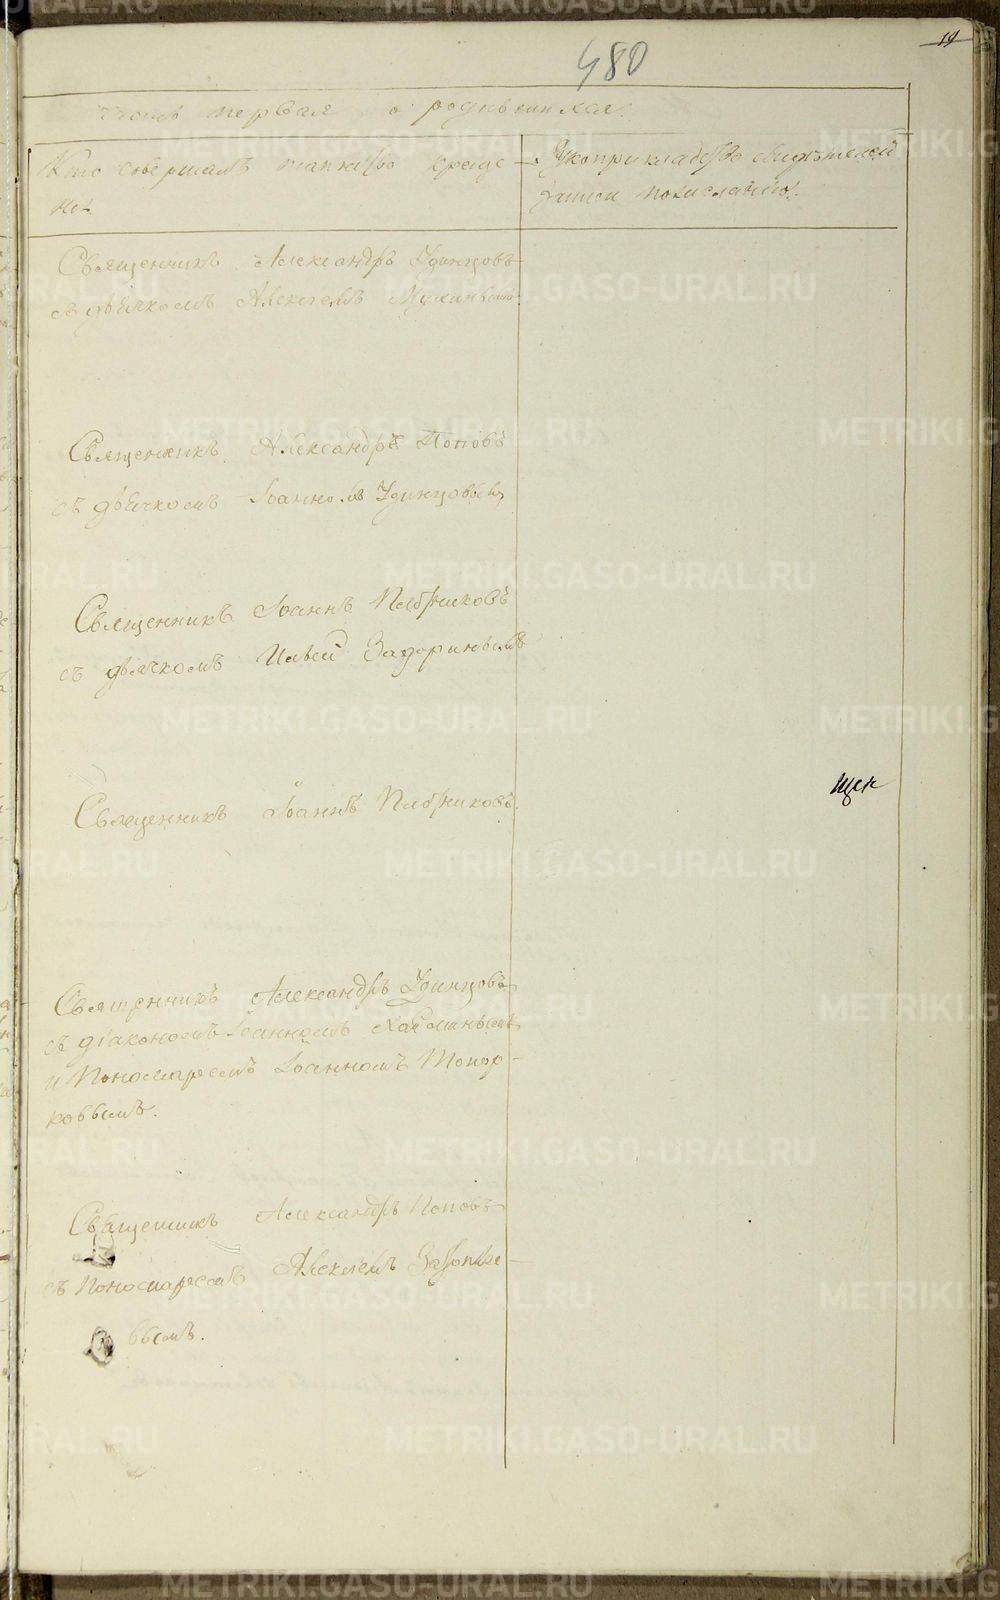 19
480
Часть первая о родившихся.
Кто совершалъ таинство креще-
нія
Рукоприкладство свидѣтелей
записи по желанію.
Священникъ Александръ Удинцовъ
съ дьячкомъ Алексѣемъ Мухинымъ
Священникъ Александръ Поповъ
съ дьячкомъ Іоанномъ Удинцовымъ
Священникъ Іоаннъ
съ дьячкомъ Ильей Задоринымъ
Священникъ Іоаннъ
щен
Священникъ Александръ Удинцовъ
съ діакономъ Іоанномъ
и Пономаремъ Іоанномъ Топор-
ковымъ.
Священникъ Александръ Поповъ
съ Пономаремъ Алексѣемъ
вымъ.
METRIKI.GASO-URAL.RU